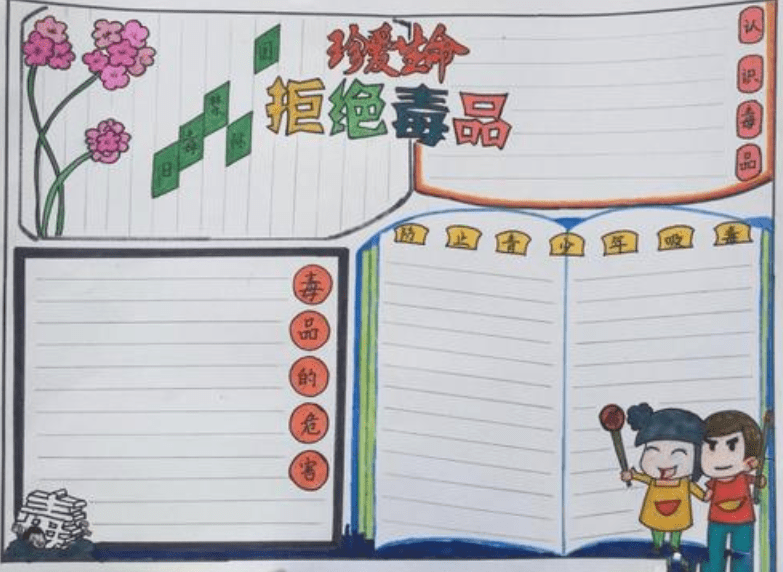 珍爱生命
拒绝毒品
国际禁毒日
认识毒品
防止青少年吸毒
毒品的危害
毒